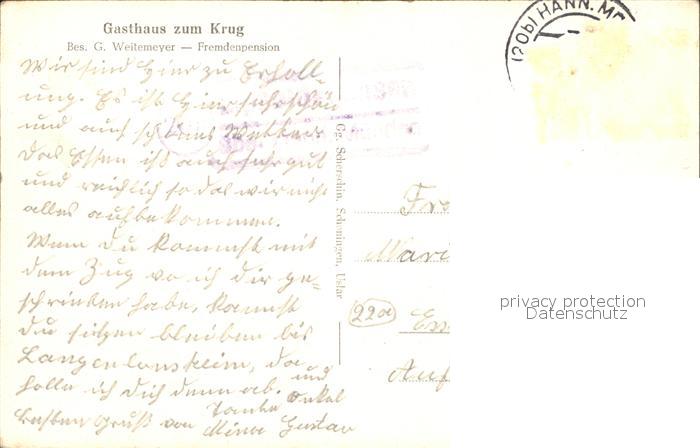 Gasthaus zum Krug
Bes. G. Weitemeyer — Fremdenpension
(20b) HANN. M
Wir sind hier zu Erholl-
ung. Es ist hier sehr schön
und auch schönes Wetter.
Das Essen ist auch sehr gut
und reichlich so das wir nicht
alles aufbekommen.
Wenn du kommst mit
dem Zug wo ich dir ge-
schrieben habe, kannst
du sitzen bleiben bis
da
holle ich dich dann ab.
besten Gruß von Tante und Onkel
Minna Gustav
Gg. Scherschin, Schoningen, Uslar
Fr
Mari
22a
Ess
Auf
privacy protection
Datenschutz